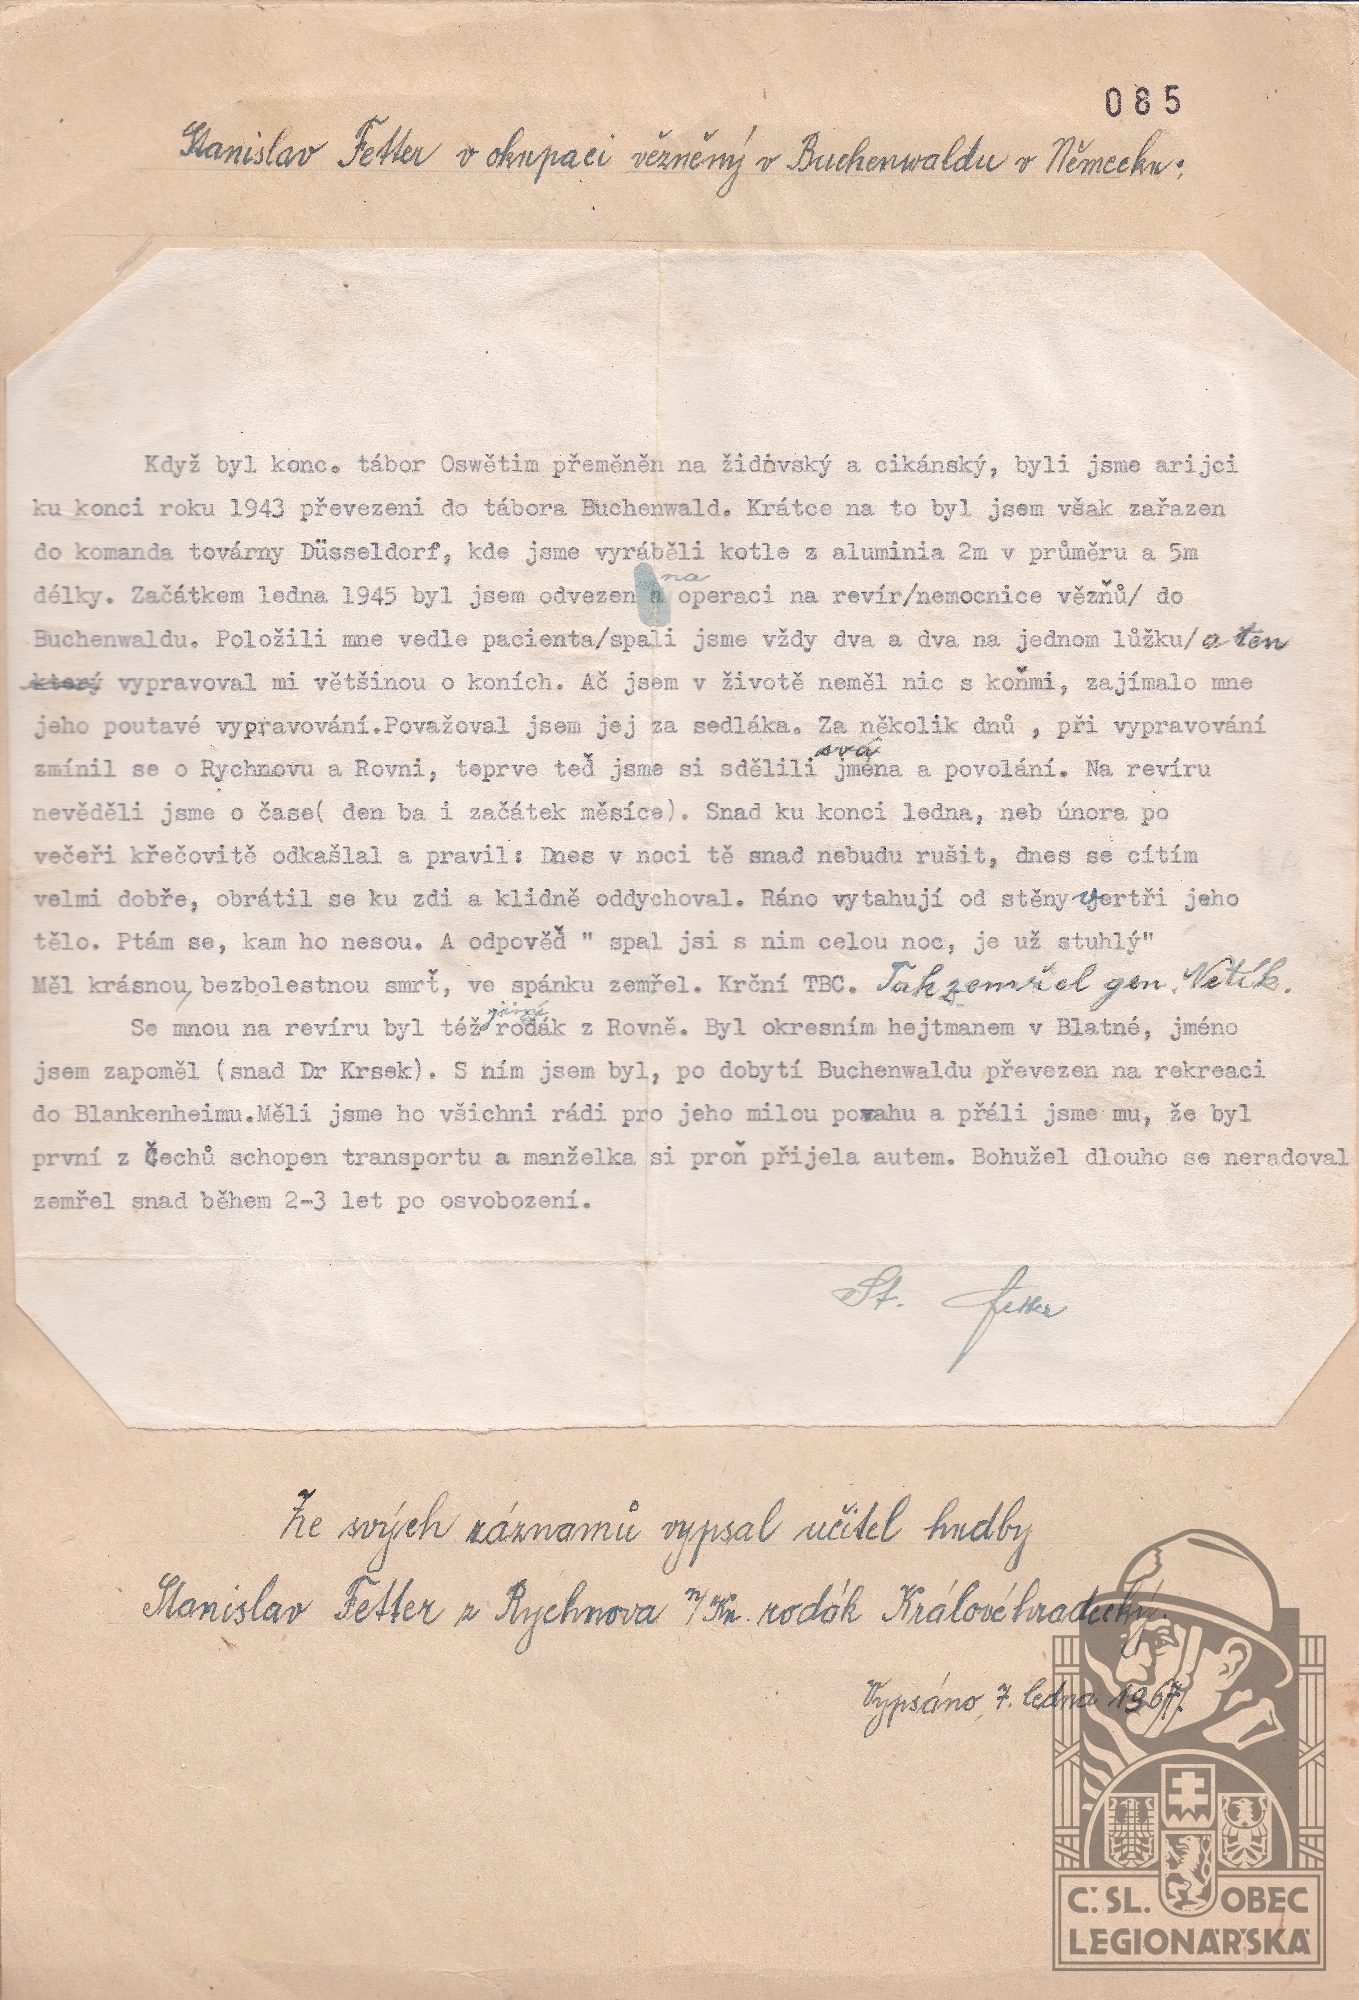 085
Stanislav Fetter v okupaci vězněný v Buchenwaldu v Německu:
Když byl konc. tábor Oswětim přeměněn na židovský a cikánský, byli jsme arijci
ku konci roku 1943 převezeni do tábora Buchenwald. Krátce na to byl jsem však zařazen
do komanda továrny Düsseldorf, kde jsme vyráběli kotle z aluminia 2m v průměru a 5m
délky. Začátkem ledna 1945 byl jsem odvezen na operaci na revír/nemocnice vězňů/ do
Buchenwaldu. Položili mne vedle pacienta/spali jsme vždy dva a dva na jednom lůžku/ a ten
který vypravoval mi většinou o koních. Ač jsem v životě neměl nic s koňmi, zajímalo mne
jeho poutavé vypravování.Považoval jsem jej za sedláka. Za několik dnů , při vypravování
zmínil se o Rychnovu a Rovni, teprve teď jsme si sdělili svá jména a povolání. Na revíru
nevěděli jsme o čase( den ba i začátek měsíce). Snad ku konci ledna, neb února po
večeři křečovitě odkašlal a pravil: Dnes v noci tě snad nebudu rušit, dnes se cítím
velmi dobře, obrátil se ku zdi a klidně oddychoval. Ráno vytahují od stěny vertři jeho
tělo. Ptám se, kam ho nesou. A odpověď " spal jsi s nim celou noc, je už stuhlý"
Měl krásnou, bezbolestnou smrť, ve spánku zemřel. Krční TBC. Tak zemřel gen. Netík.
Se mnou na revíru byl též jiný rodák z Rovně. Byl okresním hejtmanem v Blatné, jméno
jsem zapoměl (snad Dr Krsek). S ním jsem byl, po dobytí Buchenwaldu převezen na rekreaci
do Blankenheimu.Měli jsme ho všichni rádi pro jeho milou povahu a přáli jsme mu, že byl
první z Čechů schopen transportu a manželka si proň přijela autem. Bohužel dlouho se neradoval
zemřel snad během 2-3 let po osvobození.
St. Fetter
Ze svých záznamů vypsal učitel hudby
Stanislav Fetter z Rychnova n/Kn. rodák Královéhradecký.
Vypsáno, 7. ledna 1967.
Č.SL. OBEC
LEGIONÁŘSKÁ